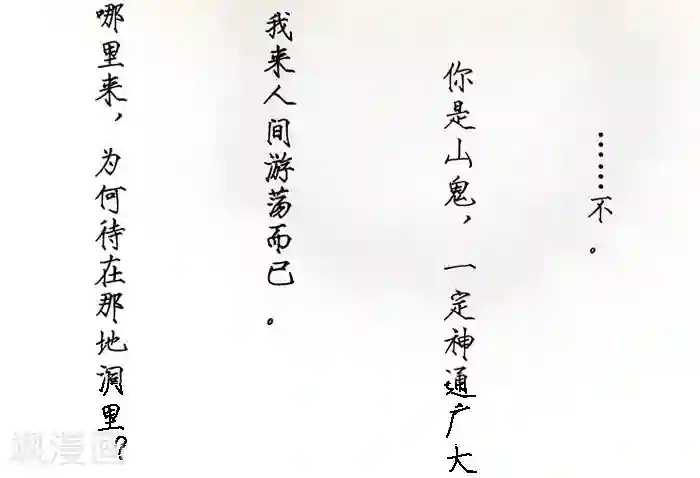 ……不。
你是山鬼，一定神通广大
我来人间游荡而已。
哪里来，为何待在那地洞里？
飒漫画